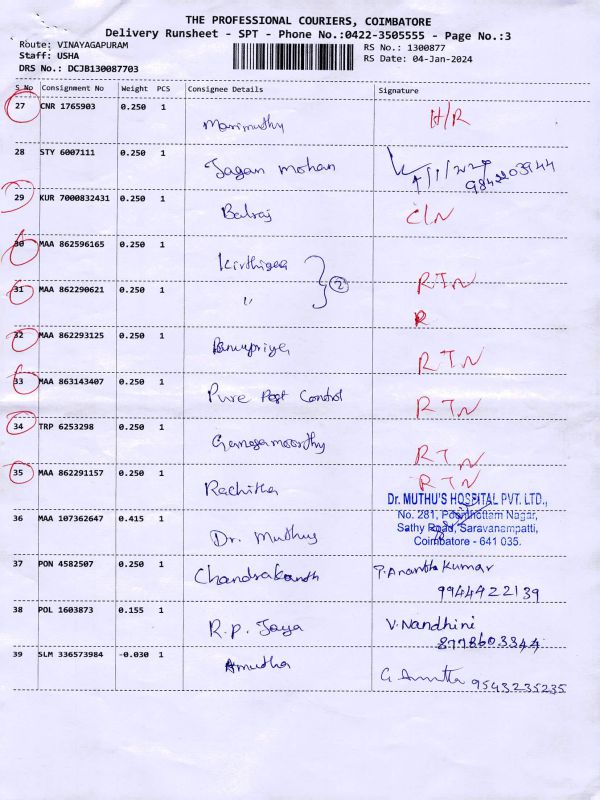 THE PROFESSIONAL COURIERS, COIMBATORE
Delivery Runsheet - SPT - Phone No.:0422-3505555 - Page No.:3
Route: VINAYAGAPURAM
RS No.: 1300877
Staff: USHA
RS Date: 04-Jan-2024
DRS No.: DCJB130087703
S No Consignment No Weight PCS Consignee Details Signature
27 CNR 1765903 0.250 1 Marimuthy H/R
28 STY 6007111 0.250 1 Jagan mohan
29 KUR 7000832431 0.250 1 Balraj C/N
30 MAA 862596165 0.250 1 Kirthigaa 2 RTN
31 MAA 862290621 0.250 1 " R
32 MAA 862293125 0.250 1 RTN
33 MAA 863143407 0.250 1 Pure Pest Control RTN
34 TRP 6253298 0.250 1 RTN
35 MAA 862291157 0.250 1 Rachitha RTN
Dr. MUTHU'S HOSPITAL PVT. LTD.,
No. 281, Poonthottam Nagar,
36 MAA 107362647 0.415 1 Dr. Muthuy
Sathy Road, Saravanampatti,
Coimbatore - 641 035.
37 PON 4582507 0.250 1 Chandrakanth P. Anantha Kumar
9944922139
38 POL 1603873 0.155 1 R.P. Jaya V. Nandhini
8778603344
39 SLM 336573984 -0.030 1 Amutha 9543235235